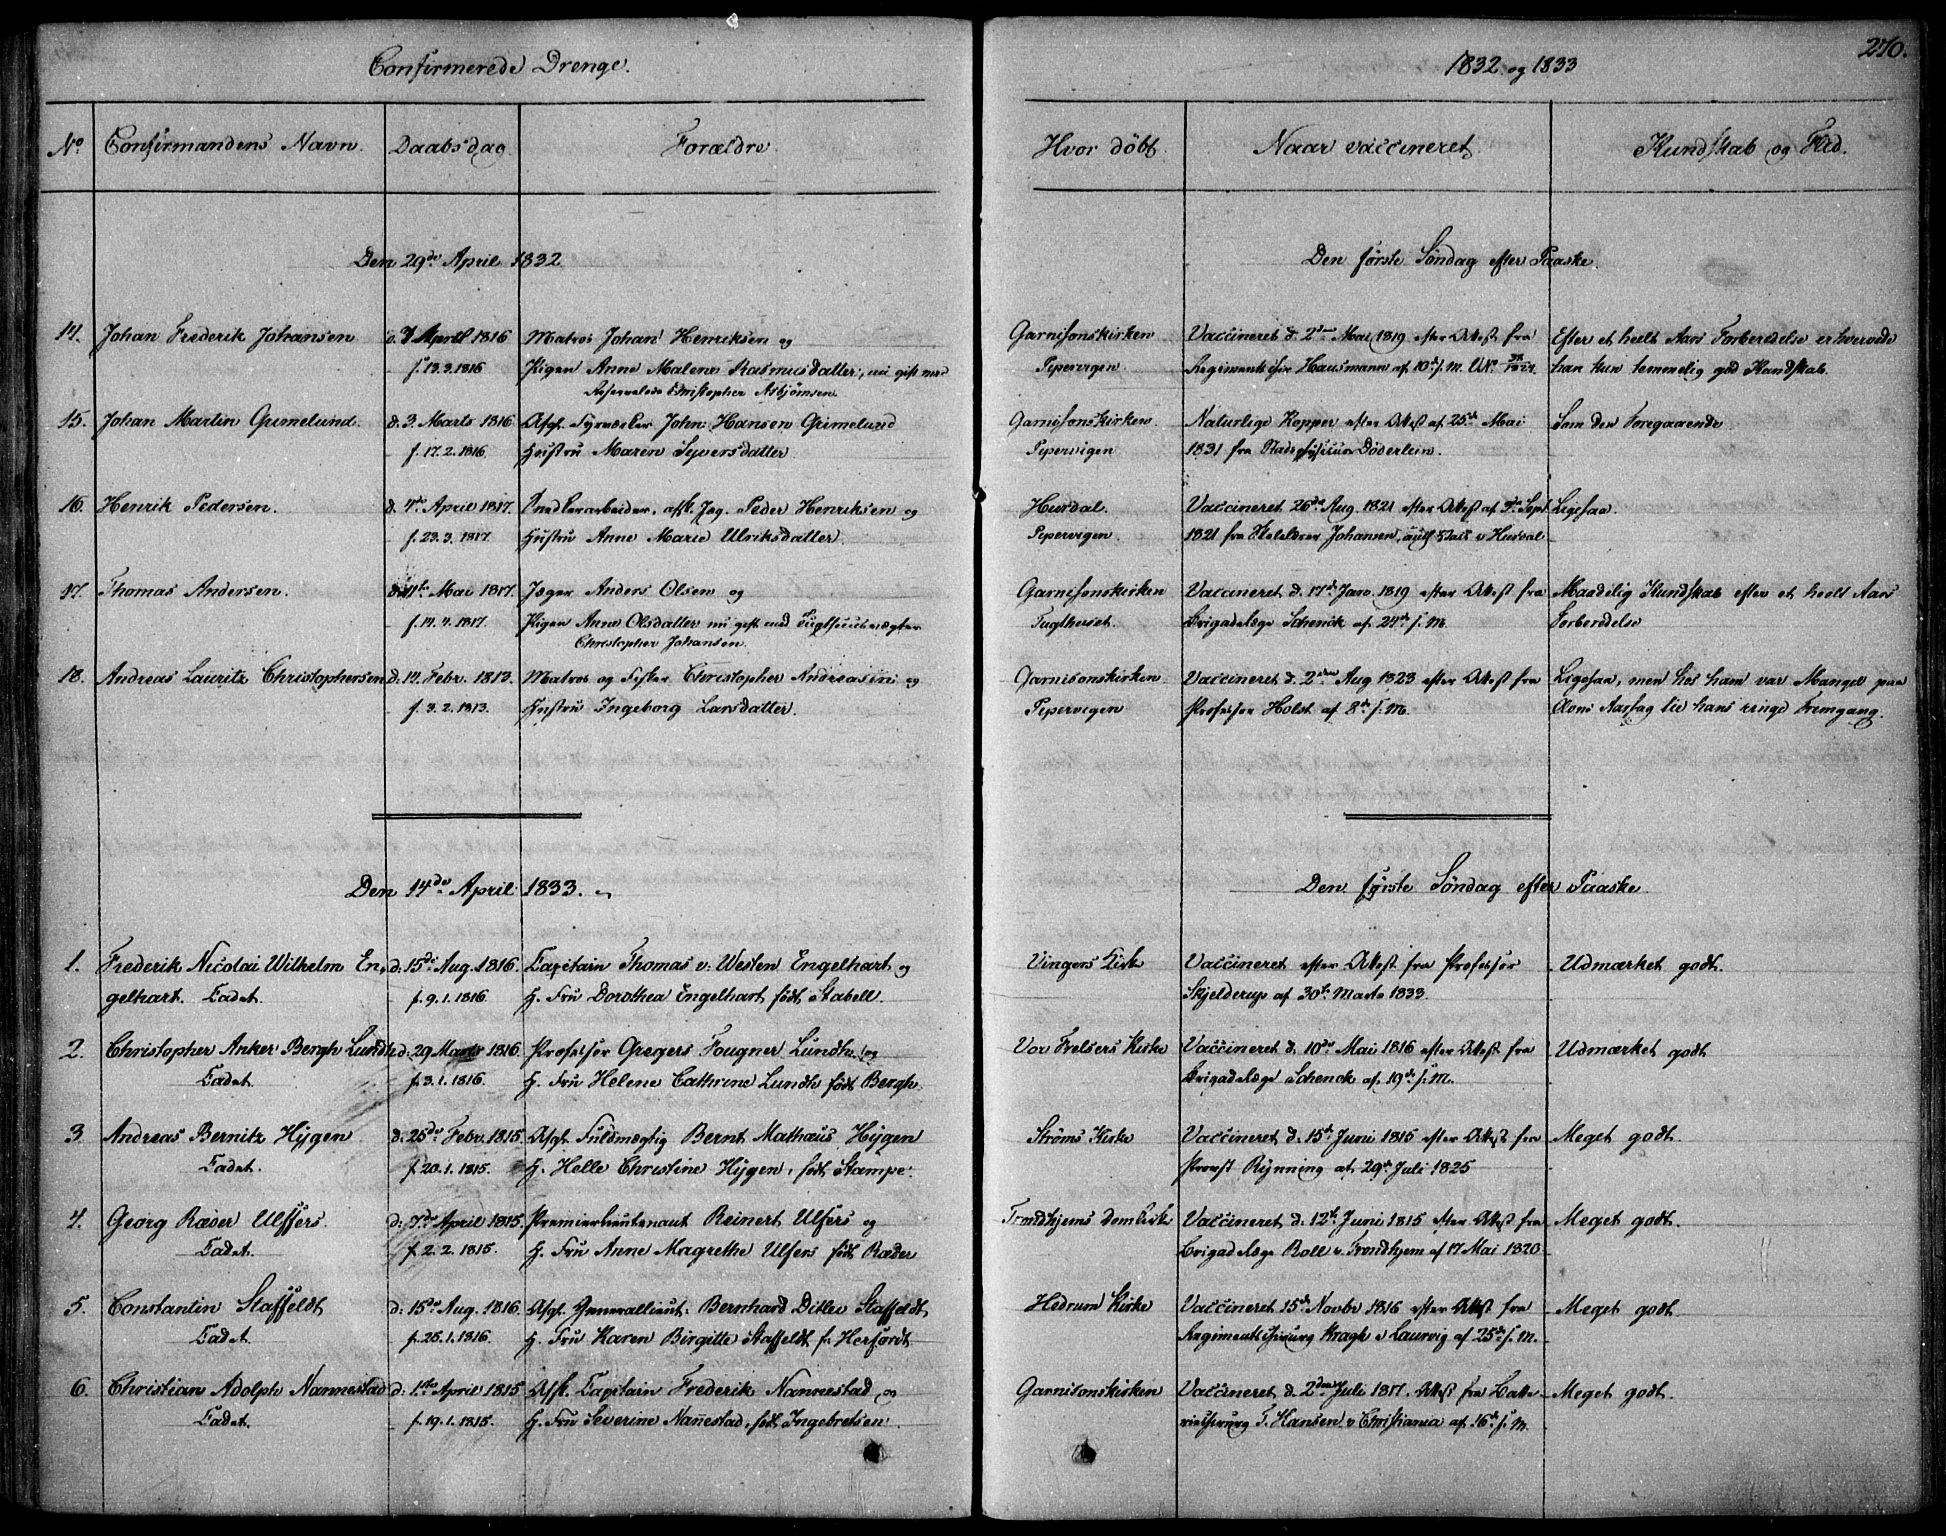 Confirmerede Drenge.
1832 og 1833
270.
No
Confirmandens Navn.
Daabsdag.
Forældre
Hvor döbt.
Naar vaccineret,
Kundskab og Flid.
Den 29de April 1832
Den förste Söndag efter Paaske.
14. Johan Frederik Johansen d. 7 April 1816 Matros Johan Henriksen og Garnisonskirken Vaccineret d. 2den Mai 1819 efter Attest fra Efter et heelt Aars Forberedelse erhvervede
f. 13.3.1816 Pigen Anne Malene Rasmusdatter, nu gift med Pepervigen. Regimentschir. Hausmann af 10de s. M. han kun temmelig god Kundskab.
Christopher Asbjörnsen
15. Johan Martin Grimelund. d. 3. Marts 1816 Afg. John Hansen Grimelund Garnisonskirken. Naturlige Kopper efter Attest af 25de Mai Som den Foregaaende
f. 17.2.1816 Hustru Maren Syversdatter Pepervigen 1831 fra Stadsphysicus Döderlein.
16. Henrik Pedersen. d. 4de April 1817. Snedkerarbeider, afsk. Jæg. Peder Henriksen og Hurdal. Vaccineret 26de Aug. 1821 efter Attest af Sept. Ligesaa.
f. 23.3.1817 Hustru Anne Marie Ulriksdatter Pepervigen. 1821 fra Johansen, i Hurdal
17. Thomas Andersen. d. 11te Mai 1817. Jæger Anders Olsen og Garnisonskirken Vaccineret d. 17de Janr. 1819 efter Attest fra Maadelig Kundskab efter et heelt Aars
f. 14.4.1817. Pigen Anne Olsdatter nu gift med Tugthuusvægter Tugthuset. Brigadelæge Schenck af 24de s. M. Forberedelse
Christopher Johansen.
18. Andreas Lauritz Christophersen d. 14. Febr. 1813. Matros og Fisker Christopher Andreasen og Garnisonskirken. Vaccineret d. 2den Aug 1823 efter Attest fra Ligesaa, men hos ham var Mangel paa
f. 3.2.1813. Hustru Ingeborg Larsdatter. Pepervigen Professor Holst af 8de s. M. Evne Aarsag til hans ringe Fremgang.
Den 14de April 1833.
Den förste Söndag efter Paaske
1. Frederik Nicolai Wilhelm En, d. 15de Aug. 1816. Capitain Thomas v: Westen Engelhart og Vingers Kirk Vaccineret efter Attest fra Professor Udmærket godt.
gelhart. Cadet. f. 9.1.1816. H. Fru Dorothea Engelhart födt Stabell. Skjelderup af 30te Marts 1833.
2. Christopher Anker Bergh Lundh d: 29 Marts 1816. Professor Gregers Fougner Lundh og Vor Frelsers Kirke Vaccineret d. 10de Mai 1816 efter Attest fra Udmærket godt
Cadet. f. 3.1.1816. H. Fru Helene Cathrine Lundh födt Bergh. Brigadelæge Schenck af 19de s. M.
3. Andreas Bernitz Hÿgen d: 25de Febr. 1815. Afg. Fuldmægtig Bernt Mathæus Hÿgen Ströms Kirke Vaccineret d: 15de Juni 1815 efter Attest fra Meget godt.
Cadet. f. 20.1.1815. H. Helle Christine Hÿgen, födt Stampe. Provst Rÿnning af 29de Juli 1825
4. Georg Ræder Ulffers. d: 7de April 1815. Premierlieutenant Reinert Ulfers og Trondhjems Domkirke Vaccineret d: 12te Juni 1815 efter Attest fra Meget godt.
Cadet. f. 2.2.1815. H. Fru Anne Magrethe Ulfers födt Ræder Brigadelæge Roll i Trondhjem af 17 Mai 1820
5. Constantin Staffeldt d: 15de Aug. 1816. Afg. Generallieut: Bernhard Ditlev Staffeldt Hedrum Kirke Vaccineret 15de Novbr 1816 efter Attest fra Meget godt.
Cadet. f. 25.1.1816. H. Fru Karen Birgitte Staffeldt f. Herfordt Regimentschirurg Kragh i Laurvig af 25de s. M.
6. Christian Adolph Nannestad d: 1ste April 1815 Afsk. Capitain Frederik Nannestad og Garnisonskirken Vaccineret d. 2den Juli 1817. Attest fra Batte- Meget godt.
Cadet. f. 19.1.1815. H. Fru Severine Nañestad, födt Ingebretsen. riechirurg F. Hansen i Christiania af 16de s. M.